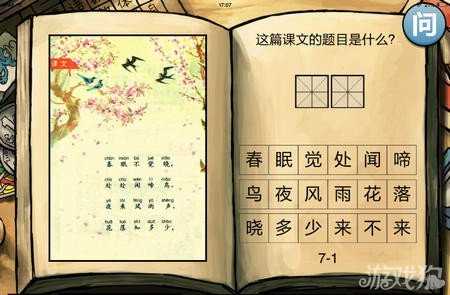 17:07
问
课文
chūn mián bù jué xiǎo
春眠不觉晓，
chù chù wén tí niǎo
处处闻啼鸟。
yè lái fēng yǔ shēng
夜来风雨声，
huā luò zhī duō shǎo
花落知多少。
这篇课文的题目是什么?
春 眠 觉 处 闻 啼
鸟 夜 风 雨 花 落
晓 多 少 来 不 来
7-1